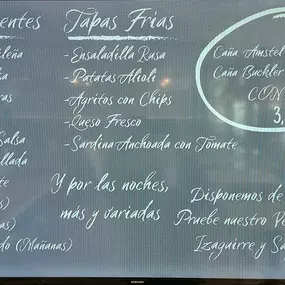 entes
Tapas Frías
-Ensaladilla Rusa
-Patatas Alioli
-Agritos con Chips
-Queso Fresco
-Sardina Anchoada con Tomate
Y por las noches,
más y variadas
Caña Amstel
Caña Buckler
CON
3,
Disponemos de
Pruebe nuestro Ve
Izaguirre y Sa
ileña
ia
as
Salsa
llada
te
s)
s)
do (Mañanas)
SAMSUNG